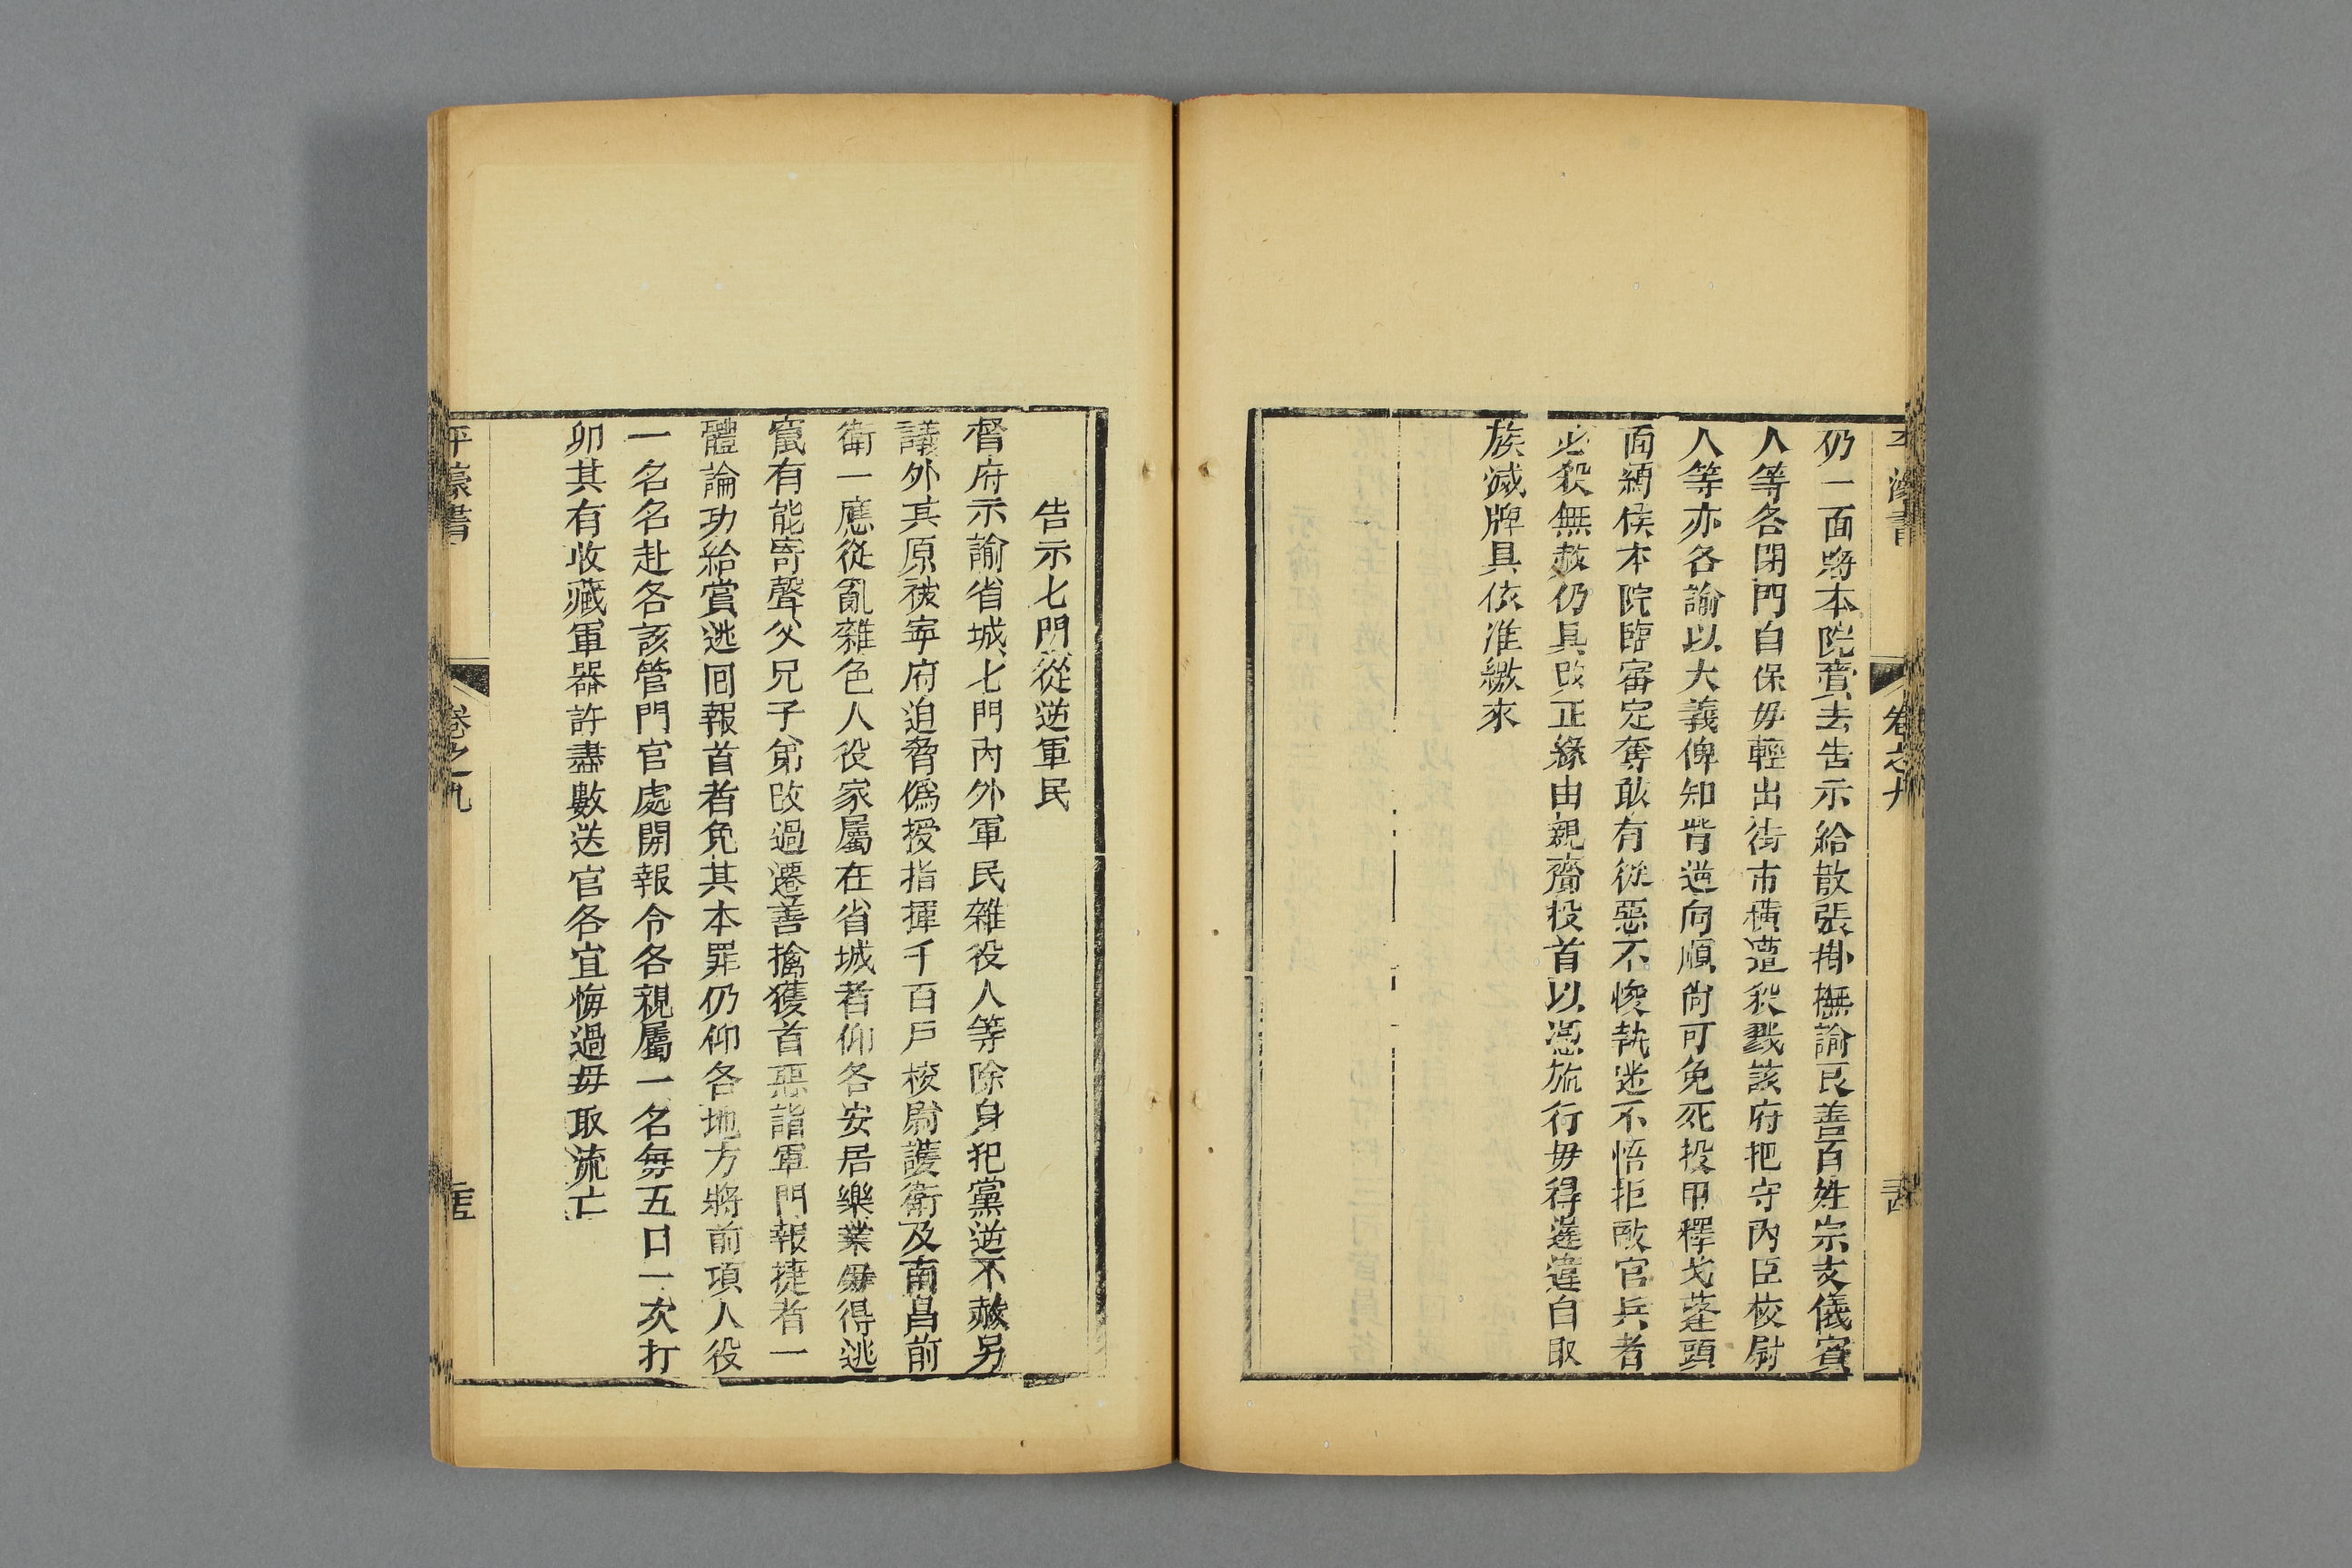 仍一面將本院賫去告示給散張掛撫諭良善百姓宗支儀賓
人等各閉門自保毋輕出街市橫遭殺戮該府把守內臣校尉
人等亦各諭以大義俾知背逆向順尚可免死投甲釋戈蓬頭
面縛俟本院臨審定奪敢有從惡不悛執迷不悟拒敵官兵者
必殺無赦仍具改正緣由親齎投首以憑施行毋得遲違自取
族滅牌具依准繳來
平濠書
卷之九
告示七門從逆軍民
督府示諭省城七門內外軍民雜役人等除身犯黨逆不赦另
議外其原被寧府迫脅僞授指揮千百戶校尉護衛及南昌前
衛一應從亂雜色人役家屬在省城者仰各安居樂業毋得逃
竄有能寄聲父兄子弟改過遷善擒獲首惡詣軍門報捷者一
體論功給賞逃回報首者免其本罪仍仰各地方將前項人役
一名名赴各該管門官處開報令各親屬一名每五日一次打
卯其有收藏軍器許盡數送官各宜悔過毋取流亡
平濠書
卷之九